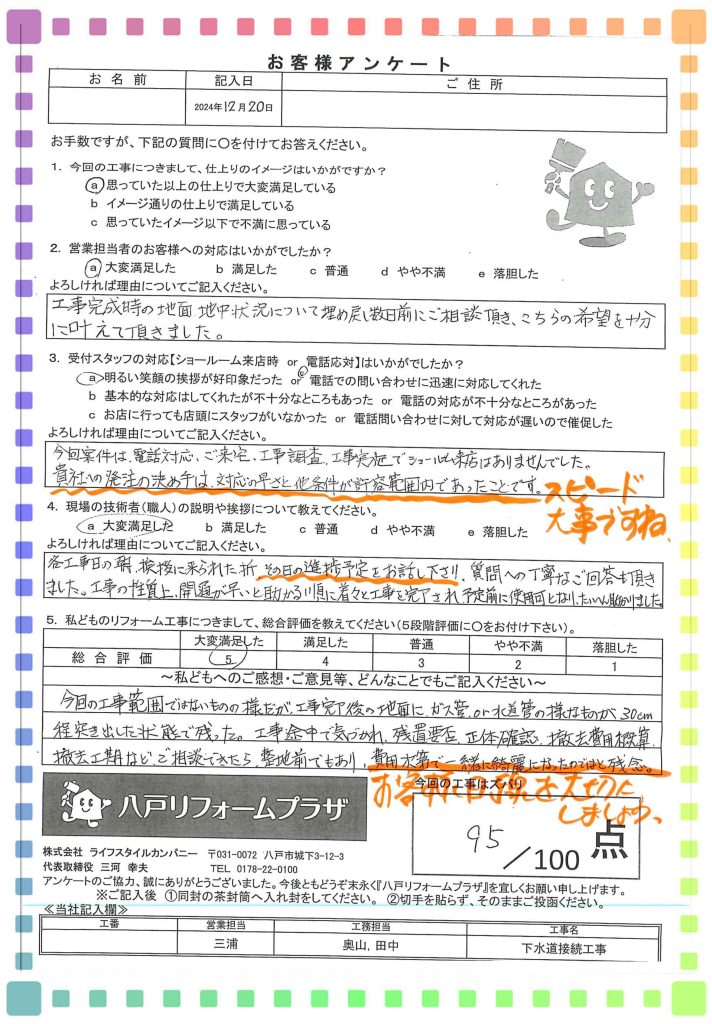 お客様アンケート
お名前 記入日 ご住所
2024年12月20日
お手数ですが、下記の質問に○を付けてお答えください。
1. 今回の工事につきまして、仕上りのイメージはいかがですか？
a 思っていた以上の仕上りで大変満足している
b イメージ通りの仕上りで満足している
c 思っていたイメージ以下で不満に思っている
2. 営業担当者のお客様への対応はいかがでしたか？
a 大変満足した b 満足した c 普通 d やや不満 e 落胆した
よろしければ理由についてご記入ください。
工事完成時の地面 地中状況について埋め戻し数日前にご相談頂き、こちらの希望を十分
に叶えて頂きました。
3. 受付スタッフの対応【ショールーム来店時 or 電話応対】はいかがでしたか？
a 明るい笑顔の挨拶が好印象だった or 電話での問い合わせに迅速に対応してくれた
b 基本的な対応はしてくれたが不十分なところもあった or 電話の対応が不十分なところがあった
c お店に行っても店頭にスタッフがいなかった or 電話問い合わせに対して対応が遅いので催促した
よろしければ理由についてご記入ください。
今回案件は、電話対応、ご来宅、工事調査、工事実施でショールーム来店はありませんでした。
貴社への発注の決め手は、対応の早さと他条件が許容範囲内であったことです。
スピード
大事ですね、
4. 現場の技術者（職人）の説明や挨拶について教えてください。
a 大変満足した b 満足した c 普通 d やや不満 e 落胆した
よろしければ理由についてご記入ください。
各工事日の朝、挨拶に来られた折、その日の進捗予定をお話し下さり、質問への丁寧なご回答も頂き
ました。工事の性質上、開通が早いと助かる順に着々と工事を完了され予定前に使用可となり、たいへん助かりました。
5. 私どものリフォーム工事につきまして、総合評価を教えてください（5段階評価に○をお付け下さい）。
大変満足した 満足した 普通 やや不満 落胆した
総合評価 5 4 3 2 1
～私どもへのご感想・ご意見等、どんなことでもご記入ください～
今回の工事範囲ではないものの様だが、工事完了後の地面に、ガス管 or 水道管の様なものが30cm
程突き出した状態で残った。工事途中で気づかれ、残置要否、正体確認、撤去費用概算、
撤去工期などご相談できたら、整地前でもあり、費用次第で一緒に綺麗になったのではと残念。
お客様目線を大切に
しましょう、
八戸リフォームプラザ
今回の工事はズバリ
95/100 点
株式会社 ライフスタイルカンパニー 〒031-0072 八戸市城下3-12-3
代表取締役 三河 幸夫 TEL 0178-22-0100
アンケートのご協力、誠にありがとうございました。今後ともどうぞ末永く『八戸リフォームプラザ』を宜しくお願い申し上げます。
※ご記入後 ①同封の茶封筒へ入れ封をしてください。 ②切手を貼らず、そのままご投函ください。
≪当社記入欄≫
工番 営業担当 工務担当 工事名
三浦 奥山、田中 下水道接続工事